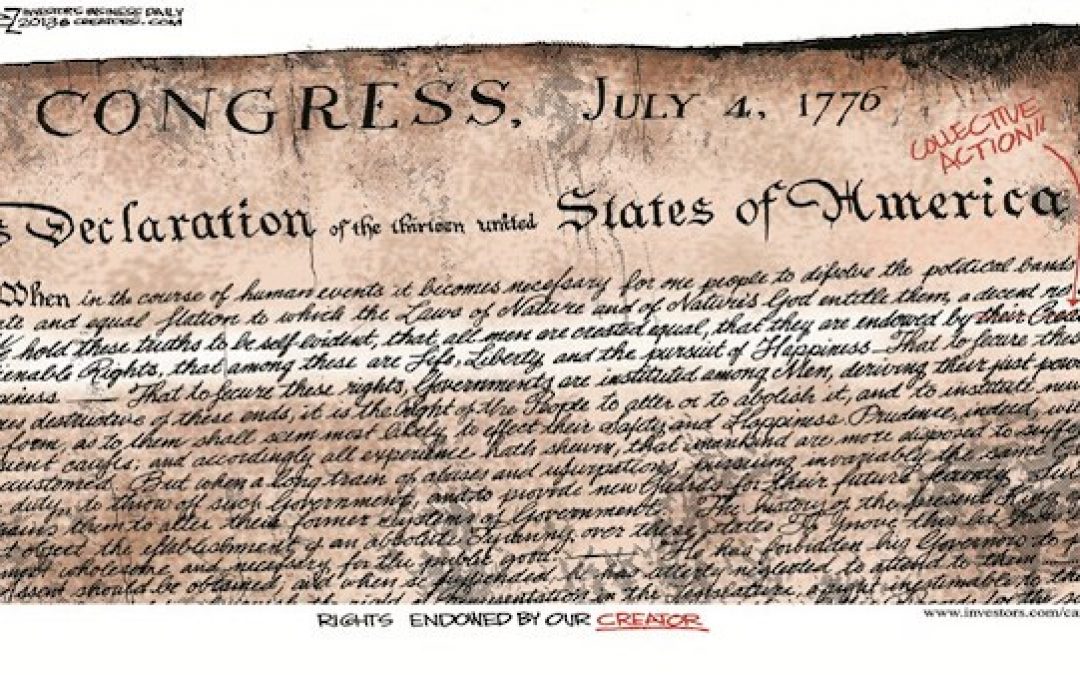 INVESTORS BUSINESS DAILY
2013 © CREATORS.COM
CONGRESS, JULY 4, 1776
COLLECTIVE
ACTION!!
Declaration of the thirteen united States of America
When in the course of human events it becomes necessary for one people to dissolve the political bands
and equal station to which the Laws of Nature and of Nature's God entitle them, a decent
hold these truths to be self evident, that all men are created equal, that they are endowed by their
Rights, that among these are Life, Liberty, and the pursuit of Happiness—That to secure
—That to secure these rights, Governments are instituted among Men, deriving their just
destructive of these ends, it is the Right of the People to alter or to abolish it, and to institute new
form, as to them shall seem most likely to effect their Safety and Happiness. Prudence, indeed,
and accordingly all experience hath shewn, that mankind are more disposed to
But when a long train of abuses and usurpations, pursuing invariably the same
duty, to throw off such Government, and to provide new Guards for their future
them to alter their former Systems of Government. The history of the present King
object the establishment of an absolute Tyranny over these States. To prove this, let
wholesome and necessary for the public good. He has forbidden his Governors to
should be obtained, and when so suspended, he has utterly neglected to attend to them
the right of Representation in the Legislature, a right inestimable to
RIGHTS ENDOWED BY OUR CREATOR
www.investors.com/ca